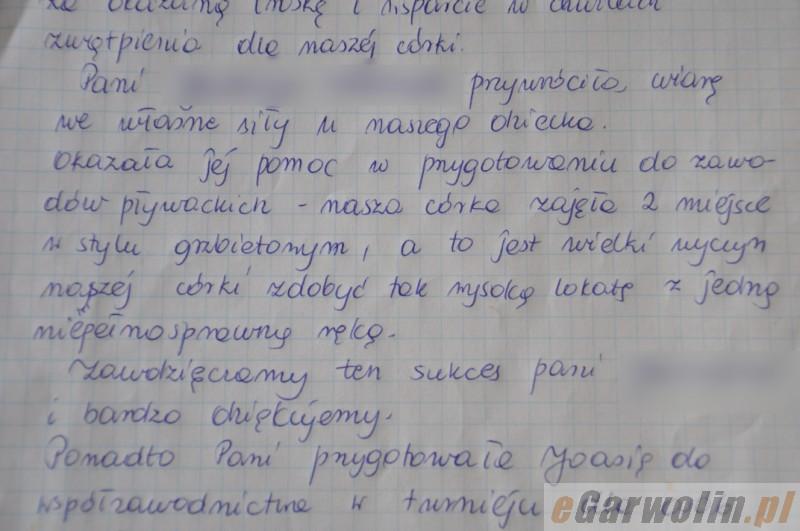 za okazaną troskę i wsparcie w chwilach
zwątpienia dla naszej córki.
Pani przywróciła wiarę
we własne siły u naszego dziecka.
Okazała jej pomoc w przygotowaniu do zawo-
dów pływackich - nasza córka zajęła 2 miejsce
w stylu grzbietowym, a to jest wielki wyczyn
naszej córki zdobyć tak wysoką lokatę z jedną
niepełnosprawną ręką.
Zawdzięczamy ten sukces pani
i bardzo dziękujemy.
Ponadto Pani przygotowała Joasię do
współzawodnictwa w turnieju
eGarwolin.pl